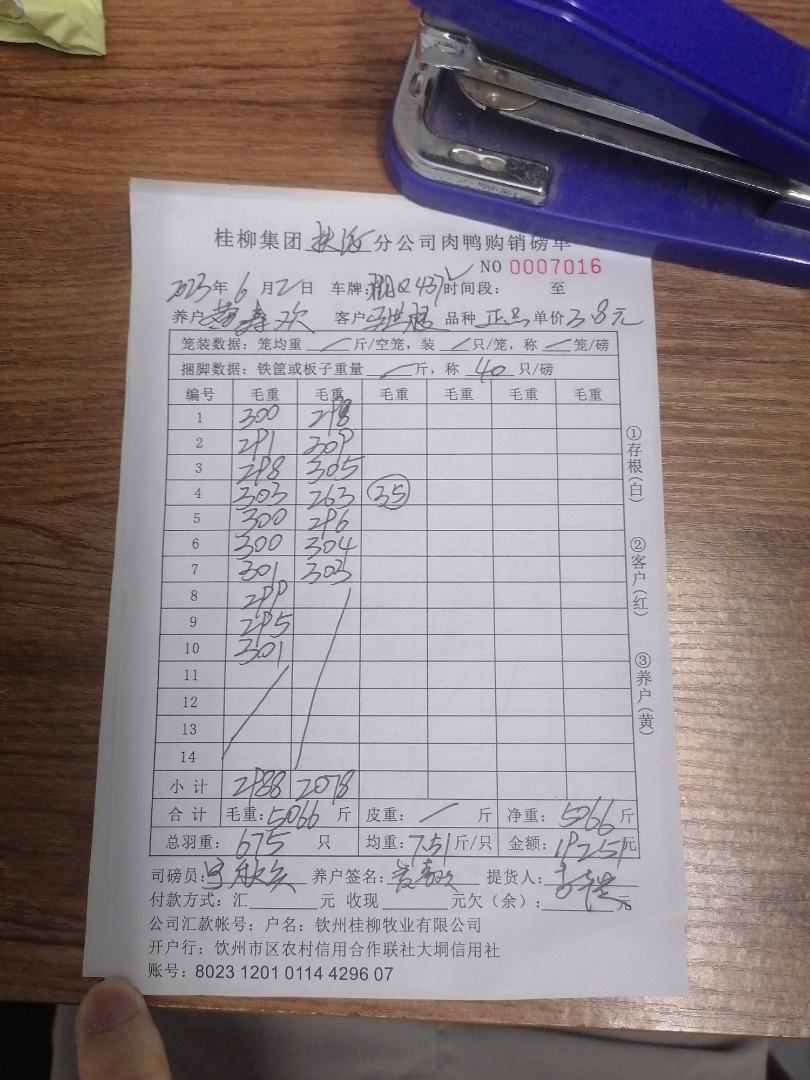 桂柳集团扶绥分公司肉鸭购销磅单
NO 0007016
2023年6月2日 车牌: 时间段： 至
养户 欢 客户 品种 正品 单价 3.8元
笼装数据：笼均重 / 斤/空笼，装 / 只/笼，称 / 笼/磅
捆脚数据：铁筐或板子重量 / 斤，称 40 只/磅
编号 毛重 毛重 毛重 毛重 毛重 毛重
1 300 298
2 291 309
3 298 305
4 303 263 35
5 300 296
6 300 304
7 301 303
8 299
9 295
10 301
11
12
13
14
小计 2988 2078
合计 毛重：5066 斤 皮重： / 斤 净重：5066 斤
总羽重： 675 只 均重：7.51 斤/只 金额：19251元
司磅员： 养户签名： 提货人：
付款方式：汇 元 收现 元欠（余）： 元
公司汇款帐号：户名：钦州桂柳牧业有限公司
开户行：饮州市区农村信用合作联社大垌信用社
账号：8023 1201 0114 4296 07
①存根（白）
②客户（红）
③养户（黄）